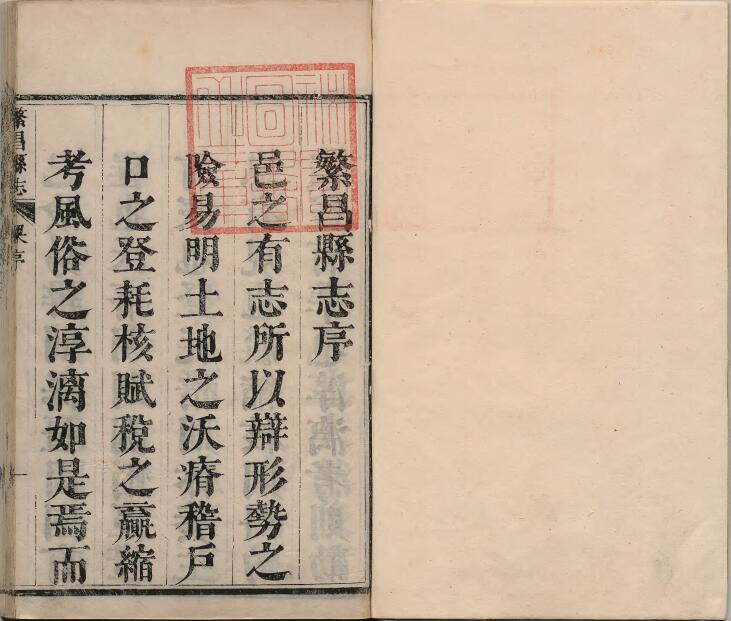 繁昌縣志序
邑之有志所以辯形勢之
險易明土地之沃瘠稽戶
口之登耗核賦稅之贏縮
考風俗之淳漓如是焉而
繁昌縣志
序